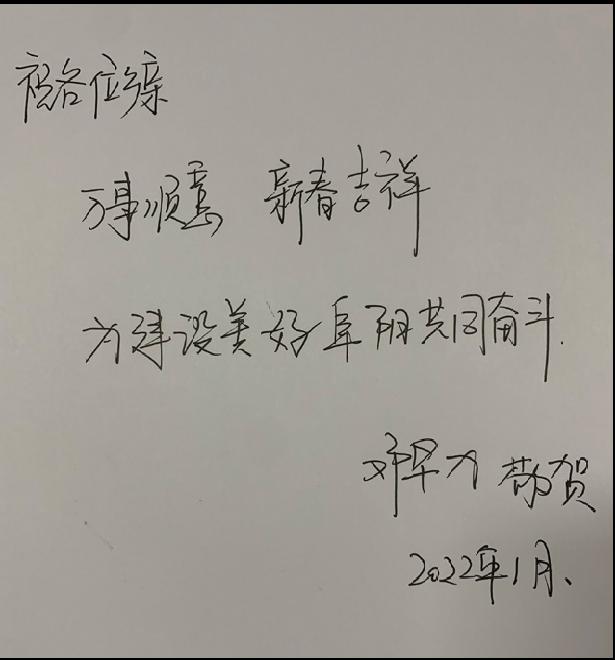 祝各位亲
万事顺意 新春吉祥
为建设美好阜阳共同奋斗.
邓早力 恭贺
2022年1月、